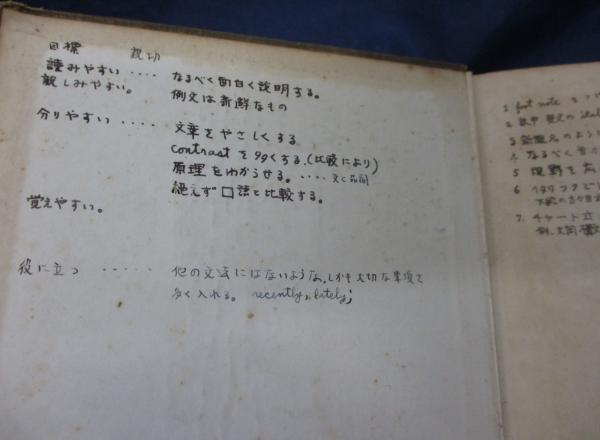 目標 親切
読みやすい ‥‥ なるべく面白く説明する。
親しみやすい。 例文は新鮮なもの
分りやすい ‥‥ 文章をやさしくする
contrastを多くする。(比較により)
原理をわからせる。‥‥
絶えず口語と比較する。
覚えやすい。
役に立つ ‥‥‥ 他の文法にはないような、しかも大切な事項を
多く入れる。 recently, lately;
1 foot note をつ
2
3 のように
4 なるべく
5 視野を広
6 イタリックに
7. チャート式
例.